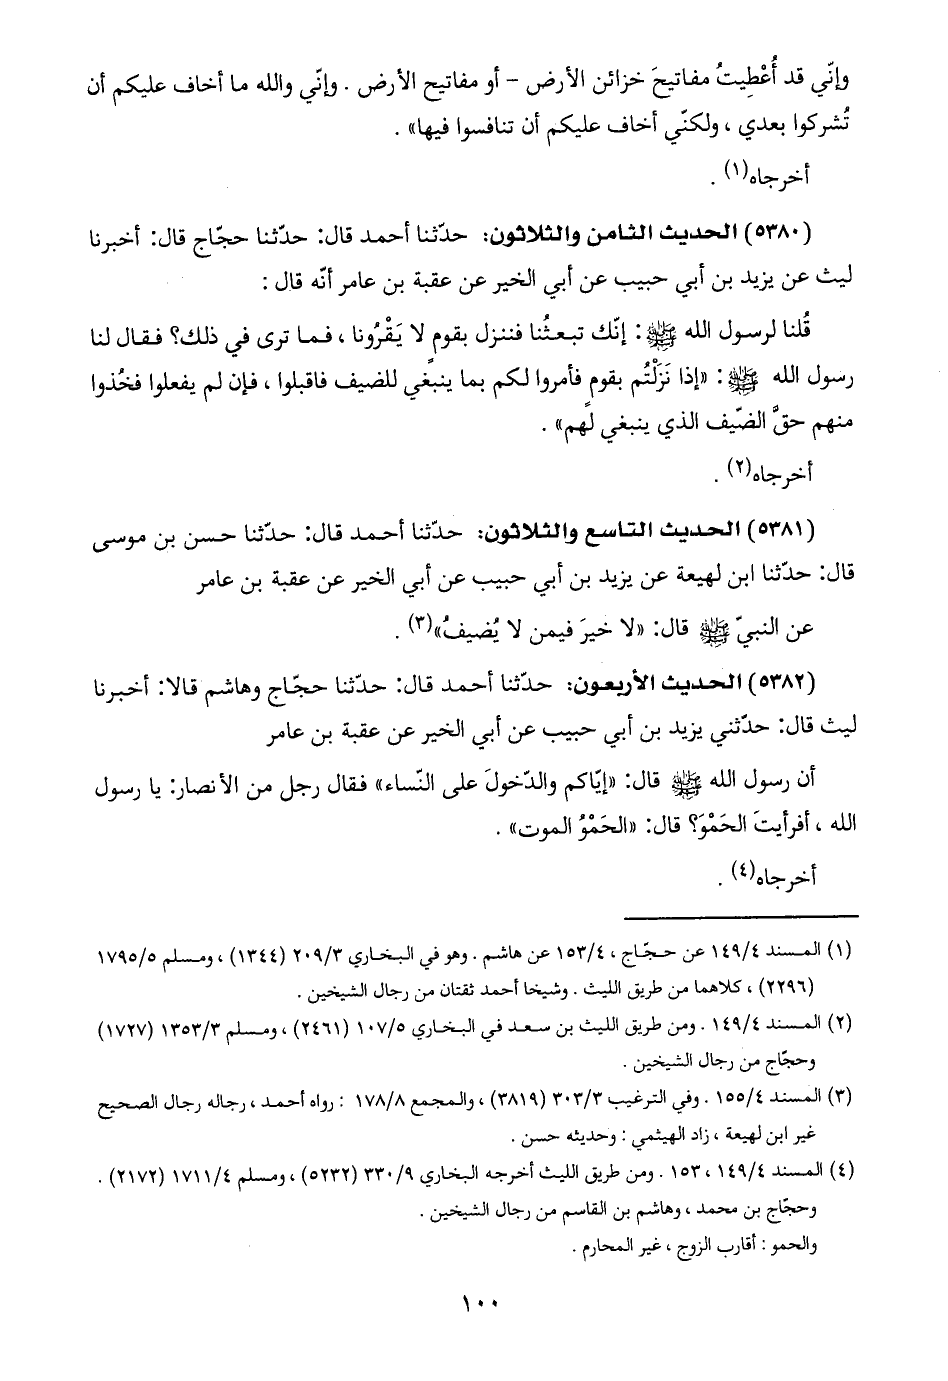 وإنّي قد أُعْطِيتُ مفاتيحَ خزائن الأرض – أو مفاتيح الأرض . وإنّي والله ما أخاف عليكم أن
تُشركوا بعدي ، ولكنّي أخاف عليكم أن تنافسوا فيها» .
أخرجاه(١) .
(٥٣٨٠) الحديث الثامن والثلاثون: حدّثنا أحمد قال: حدّثنا حجّاج قال: أخبرنا
ليث عن يزيد بن أبي حبيب عن أبي الخير عن عقبة بن عامر أنّه قال :
قُلنا لرسول الله ﷺ: إنّك تبعثُنا فننزل بقومٍ لا يَقْرُونا ، فما ترى في ذلك؟ فقال لنا
رسول الله ﷺ: «إذا نَزَلْتُم بقوم فأمروا لكم بما ينبغي للضيف فاقبلوا ، فإن لم يفعلوا فخُذوا
منهم حقَّ الضّيف الذي ينبغي لهم» .
أخرجاه(٢) .
(٥٣٨١) الحديث التاسع والثلاثون: حدّثنا أحمد قال: حدّثنا حسن بن موسى
قال: حدّثنا ابن لهيعة عن يزيد بن أبي حبيب عن أبي الخير عن عقبة بن عامر
عن النبيّ ﷺ قال: «لا خيرَ فيمن لا يُضيفُ»(٣) .
(٥٣٨٢) الحديث الأربعون: حدّثنا أحمد قال: حدّثنا حجّاج وهاشم قالا: أخبرنا
ليث قال: حدّثني يزيد بن أبي حبيب عن أبي الخير عن عقبة بن عامر
أن رسول الله ﷺ قال: «إيّاكم والدّخولَ على النّساء» فقال رجل من الأنصار: يا رسول
الله ، أفرأيتَ الحَمْوَ؟ قال: «الحَمْوُ الموت» .
أخرجاه(٤) .
(١) المسند ١٤٩/٤ عن حجّاج ، ١٥٣/٤ عن هاشم . وهو في البخاري ٢٠٩/٣ (١٣٤٤) ، ومسلم ١٧٩٥/٥
(٢٢٩٦) ، كلاهما من طريق الليث . وشيخا أحمد ثقتان من رجال الشيخين .
(٢) المسند ١٤٩/٤ . ومن طريق الليث بن سعد في البخاري ١٠٧/٥ (٢٤٦١) ، ومسلم ١٣٥٣/٣ (١٧٢٧)
وحجّاج من رجال الشيخين .
(٣) المسند ١٥٥/٤ . وفي الترغيب ٣٠٣/٣ (٣٨١٩) ، والمجمع ١٧٨/٨ : رواه أحمد ، رجاله رجال الصحيح
غير ابن لهيعة ، زاد الهيثمي : وحديثه حسن .
(٤) المسند ١٤٩/٤ ، ١٥٣ . ومن طريق الليث أخرجه البخاري ٣٣٠/٩ (٥٢٣٢) ، ومسلم ١٧١١/٤ (٢١٧٢) .
وحجّاج بن محمد ، وهاشم بن القاسم من رجال الشيخين .
والحمو : أقارب الزوج ، غير المحارم .
١٠٠